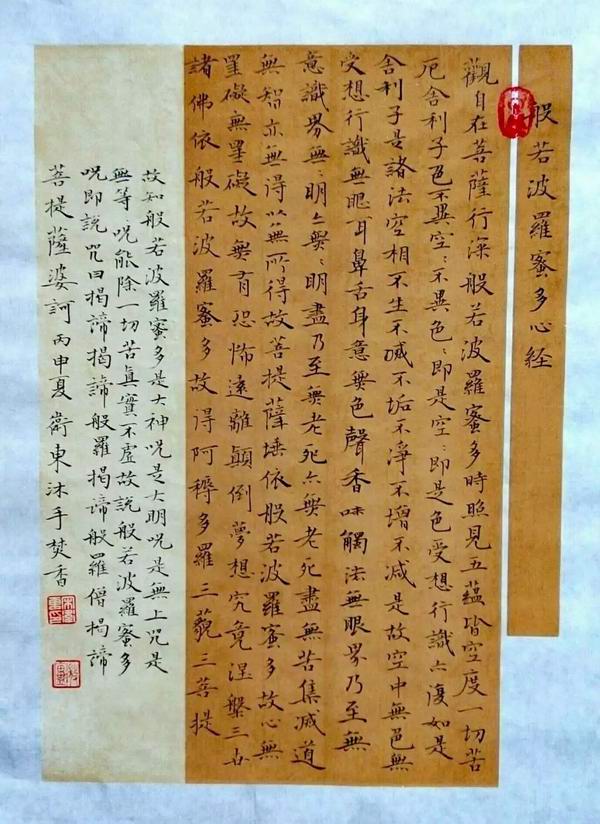 般若波羅蜜多心経
觀自在菩薩行深般若波羅蜜多時照見五蘊皆空度一切苦
厄舍利子色不異空〻不異色〻即是空〻即是色受想行識亦復如是
舍利子是諸法空相不生不滅不垢不淨不增不減是故空中無色無
受想行識無眼耳鼻舌身意無色聲香味觸法無眼界乃至無
意識界無〻明亦無〻明盡乃至無老死亦無老死盡無苦集滅道
無智亦無得以無所得故菩提薩埵依般若波羅蜜多故心無
罣礙無罣礙故無有恐怖遠離顛倒夢想究竟涅槃三世
諸佛依般若波羅蜜多故得阿耨多羅三藐三菩提
故知般若波羅蜜多是大神咒是大明咒是無上咒是
無等〻咒能除一切苦真實不虛故說般若波羅蜜多
咒即說咒曰揭諦揭諦般羅揭諦般羅僧揭諦
菩提薩婆訶 丙申夏衛東沐手焚香